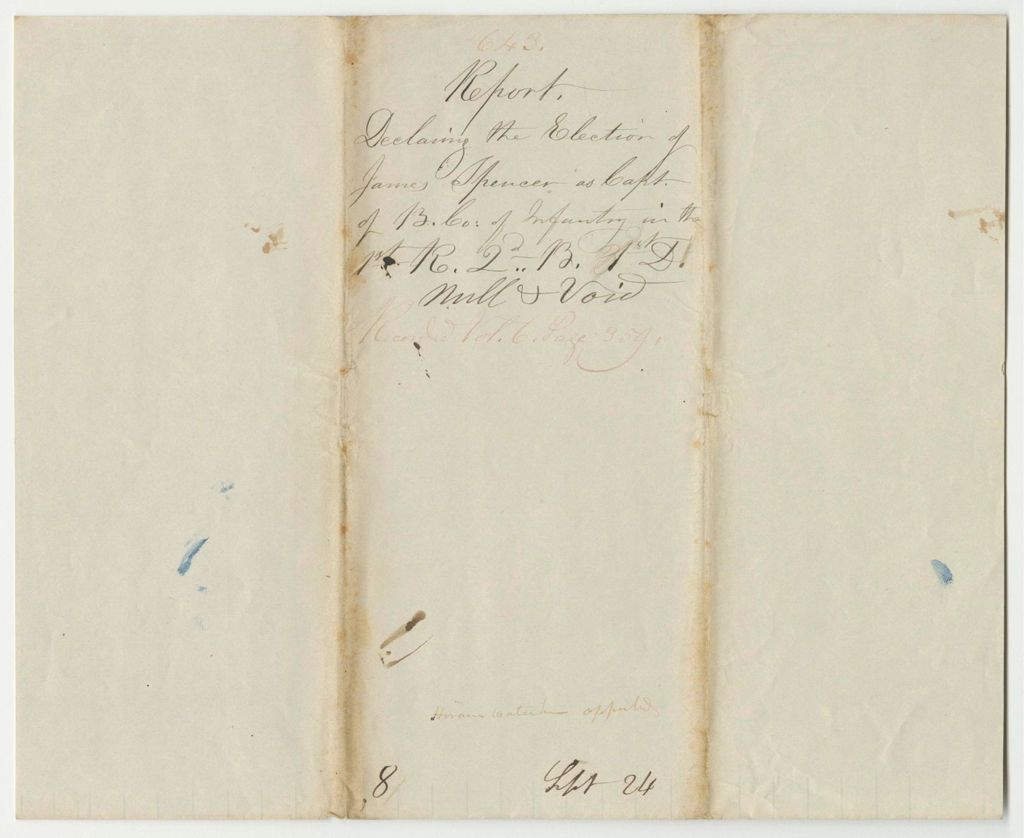 643.
Report.
Declaring the Election of
James Spencer as Capt.
of B. Co: of Infantry in the
1st R. 2d B. 1st D.
Null & Void
Recorded Vol. 6. Page 359.
Hiram appointed
8 Sept 24